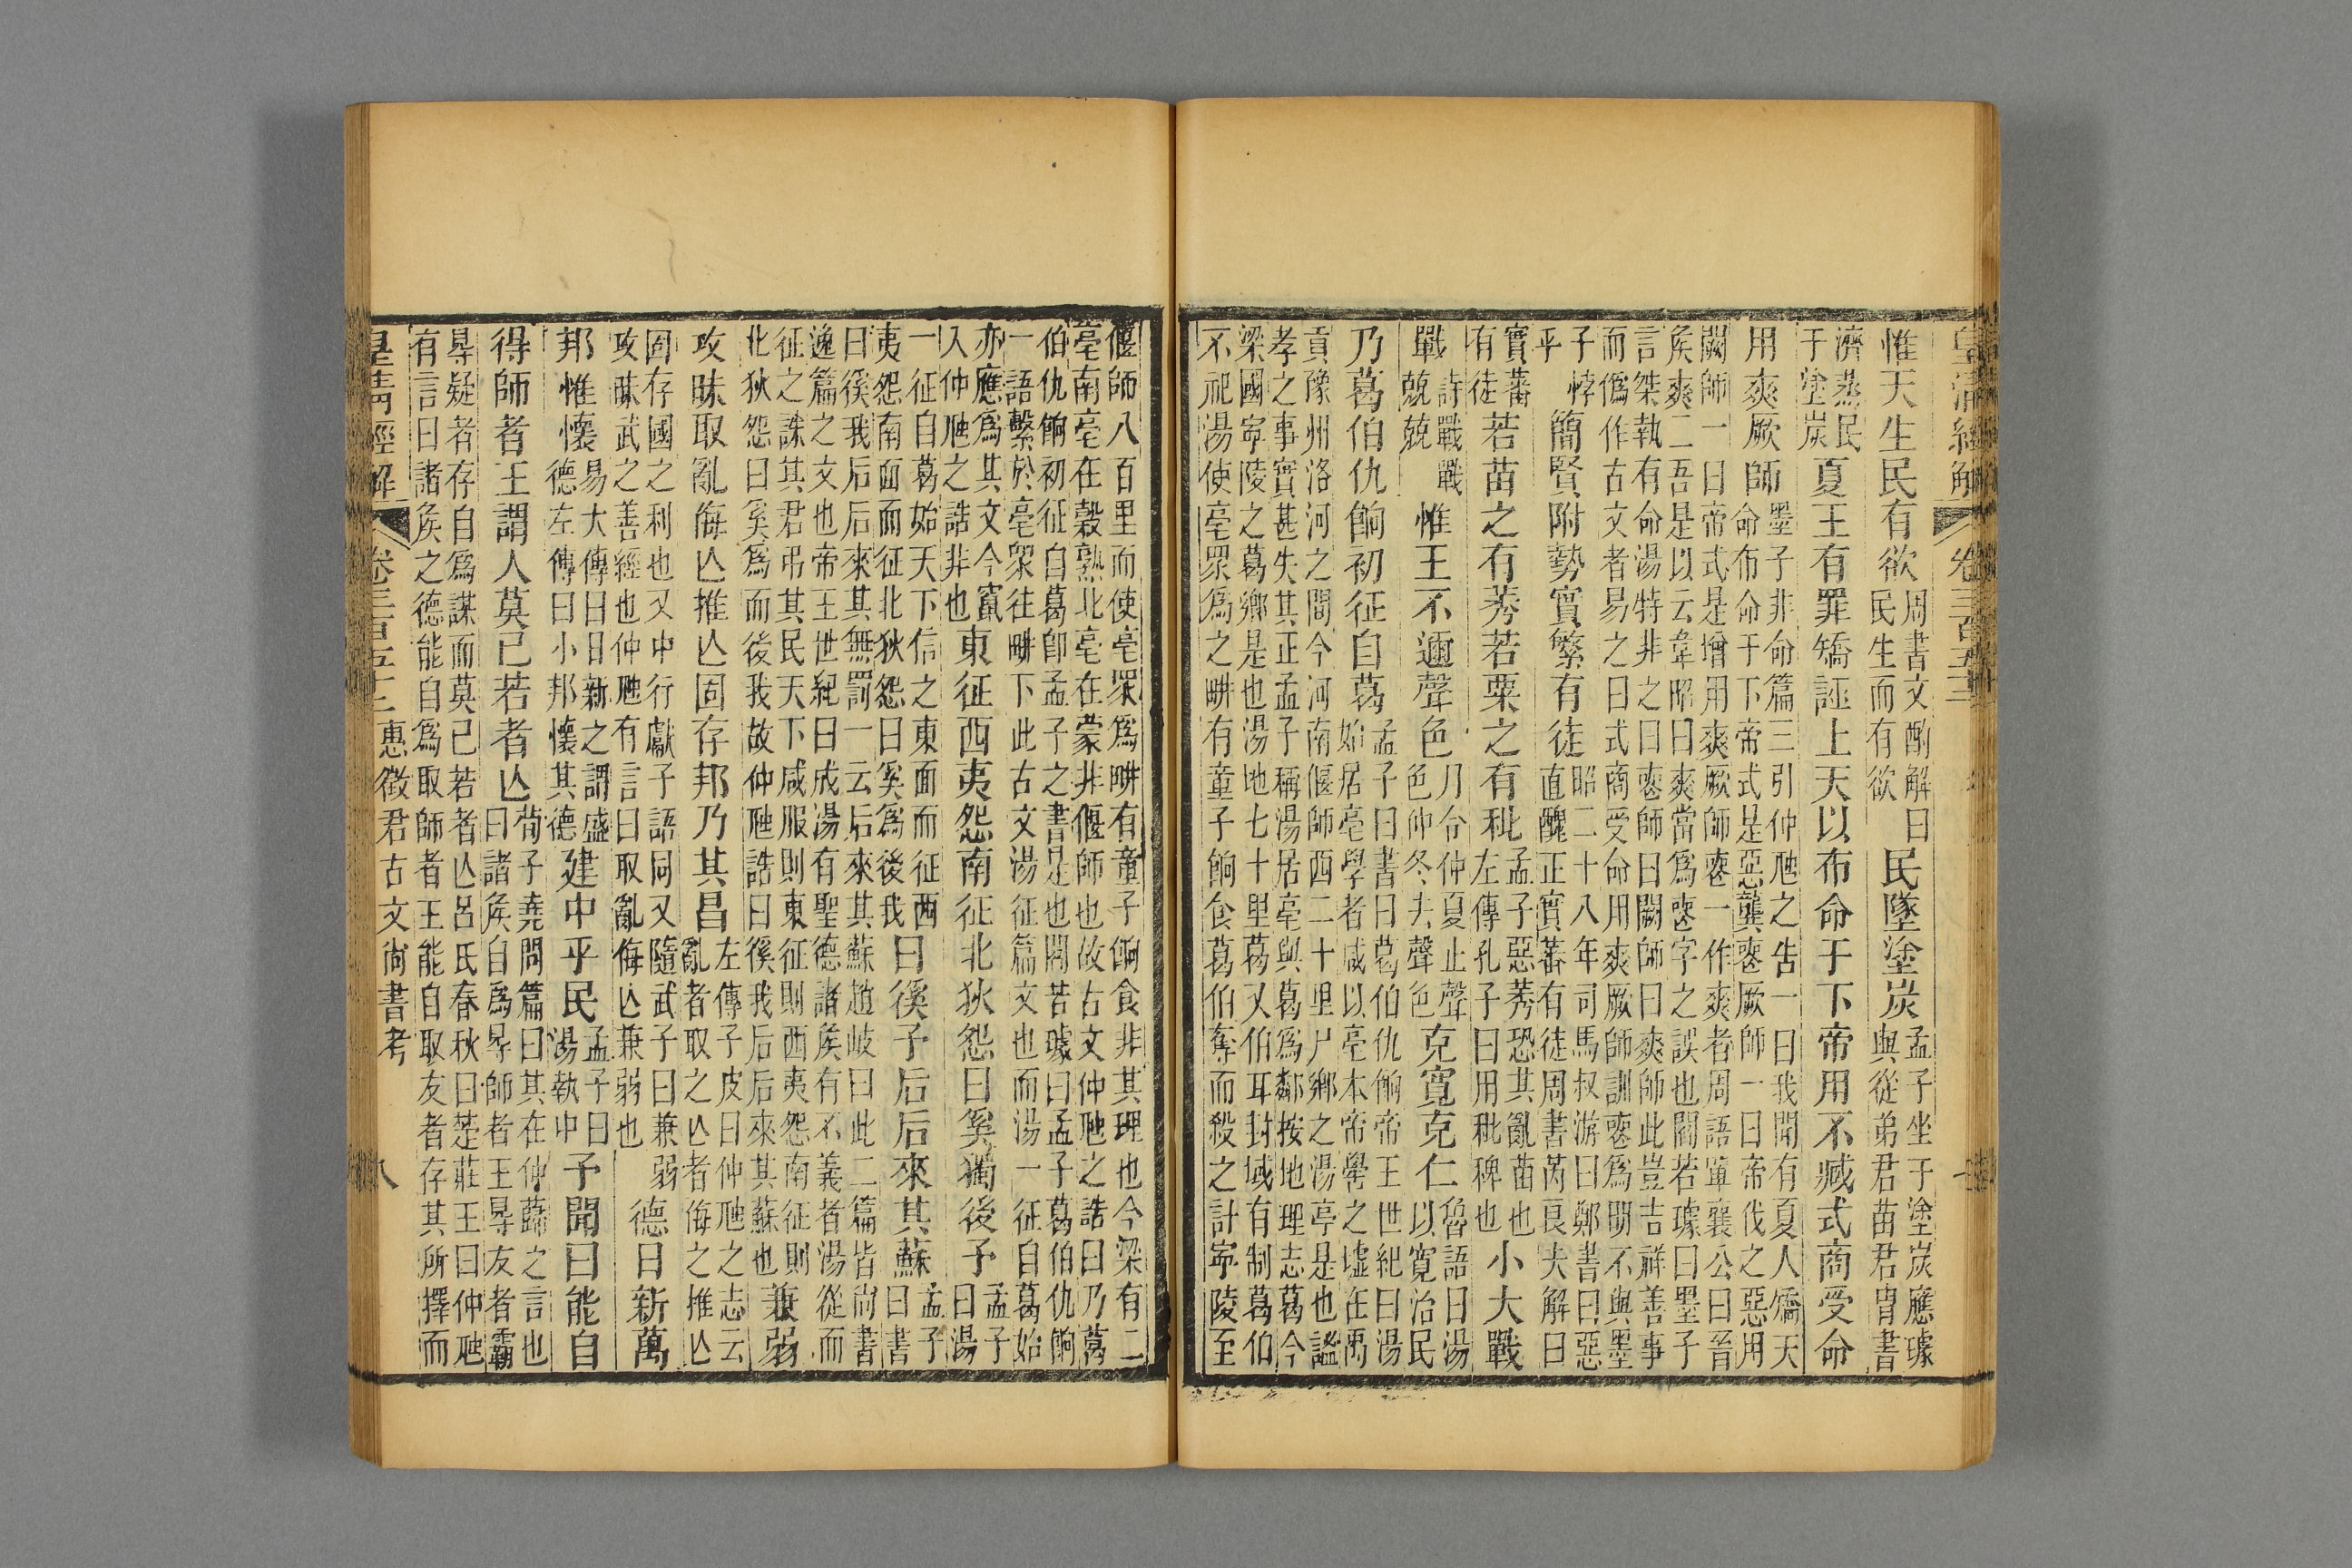 皇清經解 卷三百五十二 七
惟天生民有欲 周書文酌解曰 民生而有欲 民墜塗炭 孟子坐于塗炭應璩 與從弟君苗君冑書
濟蒸民 于塗炭 夏王有罪矯誣上天以布命于下帝用不臧式商受命
用爽厥師 墨子非命篇三引仲虺之告一曰我聞有夏人矯天 命布命于下帝式是惡龔喪厥師一曰帝伐之惡用
闕師一曰帝式是增用爽厥師喪一作爽者周語單襄公曰晉 侯爽二吾是以云韋昭曰爽當爲喪字之誤也閻若璩曰墨子
言桀執有命湯特非之曰喪師曰闕師曰爽師此豈吉祥善事 而僞作古文者易之曰式商受命用爽厥師訓喪爲明不與墨
子 悖 乎 簡賢附勢實繁有徒 昭二十八年司馬叔游曰鄭書曰惡 直醜正實蕃有徒周書芮良夫解曰
實蕃 有徒 若苗之有莠若粟之有秕 孟子惡莠恐其亂苗也 左傳孔子曰用秕稗也 小大戰
戰 詩戰戰 兢兢 惟王不邇聲色 月令仲夏止聲 色仲冬去聲色 克寬克仁 魯語曰湯 以寬治民
乃葛伯仇餉初征自葛 孟子曰書曰葛伯仇餉帝王世紀曰湯 始居亳學者咸以亳本帝嚳之墟在禹
貢豫州洛河之間今河南偃師西二十里尸鄉之湯亭是也謐 孝之事實甚失其正孟子稱湯居亳與葛爲鄰按地理志葛今
梁國寧陵之葛鄉是也湯地七十里葛又伯耳封域有制葛伯 不祀湯使亳眾爲之畊有童子餉食葛伯奪而殺之計寧陵至
偃師八百里而使亳眾爲畊有童子餉食非其理也今梁有二 亳南亳在穀熟北亳在蒙非偃師也故古文仲虺之誥曰乃葛
伯仇餉初征自葛卽孟子之書是也閻若璩曰孟子葛伯仇餉 一語繫於亳眾往畊下此古文湯征篇文也而湯一征自葛始
亦應爲其文今竄 入仲虺之誥非也 東征西夷怨南征北狄怨曰奚獨後予 孟子 曰湯
一征自葛始天下信之東面而征西 夷怨南面而征北狄怨曰奚爲後我 曰徯予后后來其蘇 孟子 曰書
曰徯我后后來其無罰一云后來其蘇趙岐曰此二篇皆尙書 逸篇之文也帝王世紀曰成湯有聖德諸侯有不義者湯從而
征之誅其君弔其民天下咸服則東征則西夷怨南征則 北狄怨曰奚爲而後我故仲虺誥曰徯我后后來其蘇也 兼弱
攻昧取亂侮亾推亾固存邦乃其昌 左傳子皮曰仲虺之志云 亂者取之亾者侮之推亾
固存國之利也又中行獻子語同又隨武子曰兼弱 攻昧武之善經也仲虺有言曰取亂侮亾兼弱也 德日新萬
邦惟懷 易大傳曰日新之謂盛 德左傳曰小邦懷其德 建中乎民 孟子曰 湯執中 予聞曰能自
得師者王謂人莫已若者亾 荀子堯問篇曰其在仲蘬之言也 曰諸侯自爲㝵師者王㝵友者霸
㝵疑者存自爲謀而莫已若者亾呂氏春秋曰楚莊王曰仲虺 有言曰諸侯之德能自爲取師者王能自取友者存其所擇而
皇清經解 卷三百五十二 惠徵君古文尙書考 八